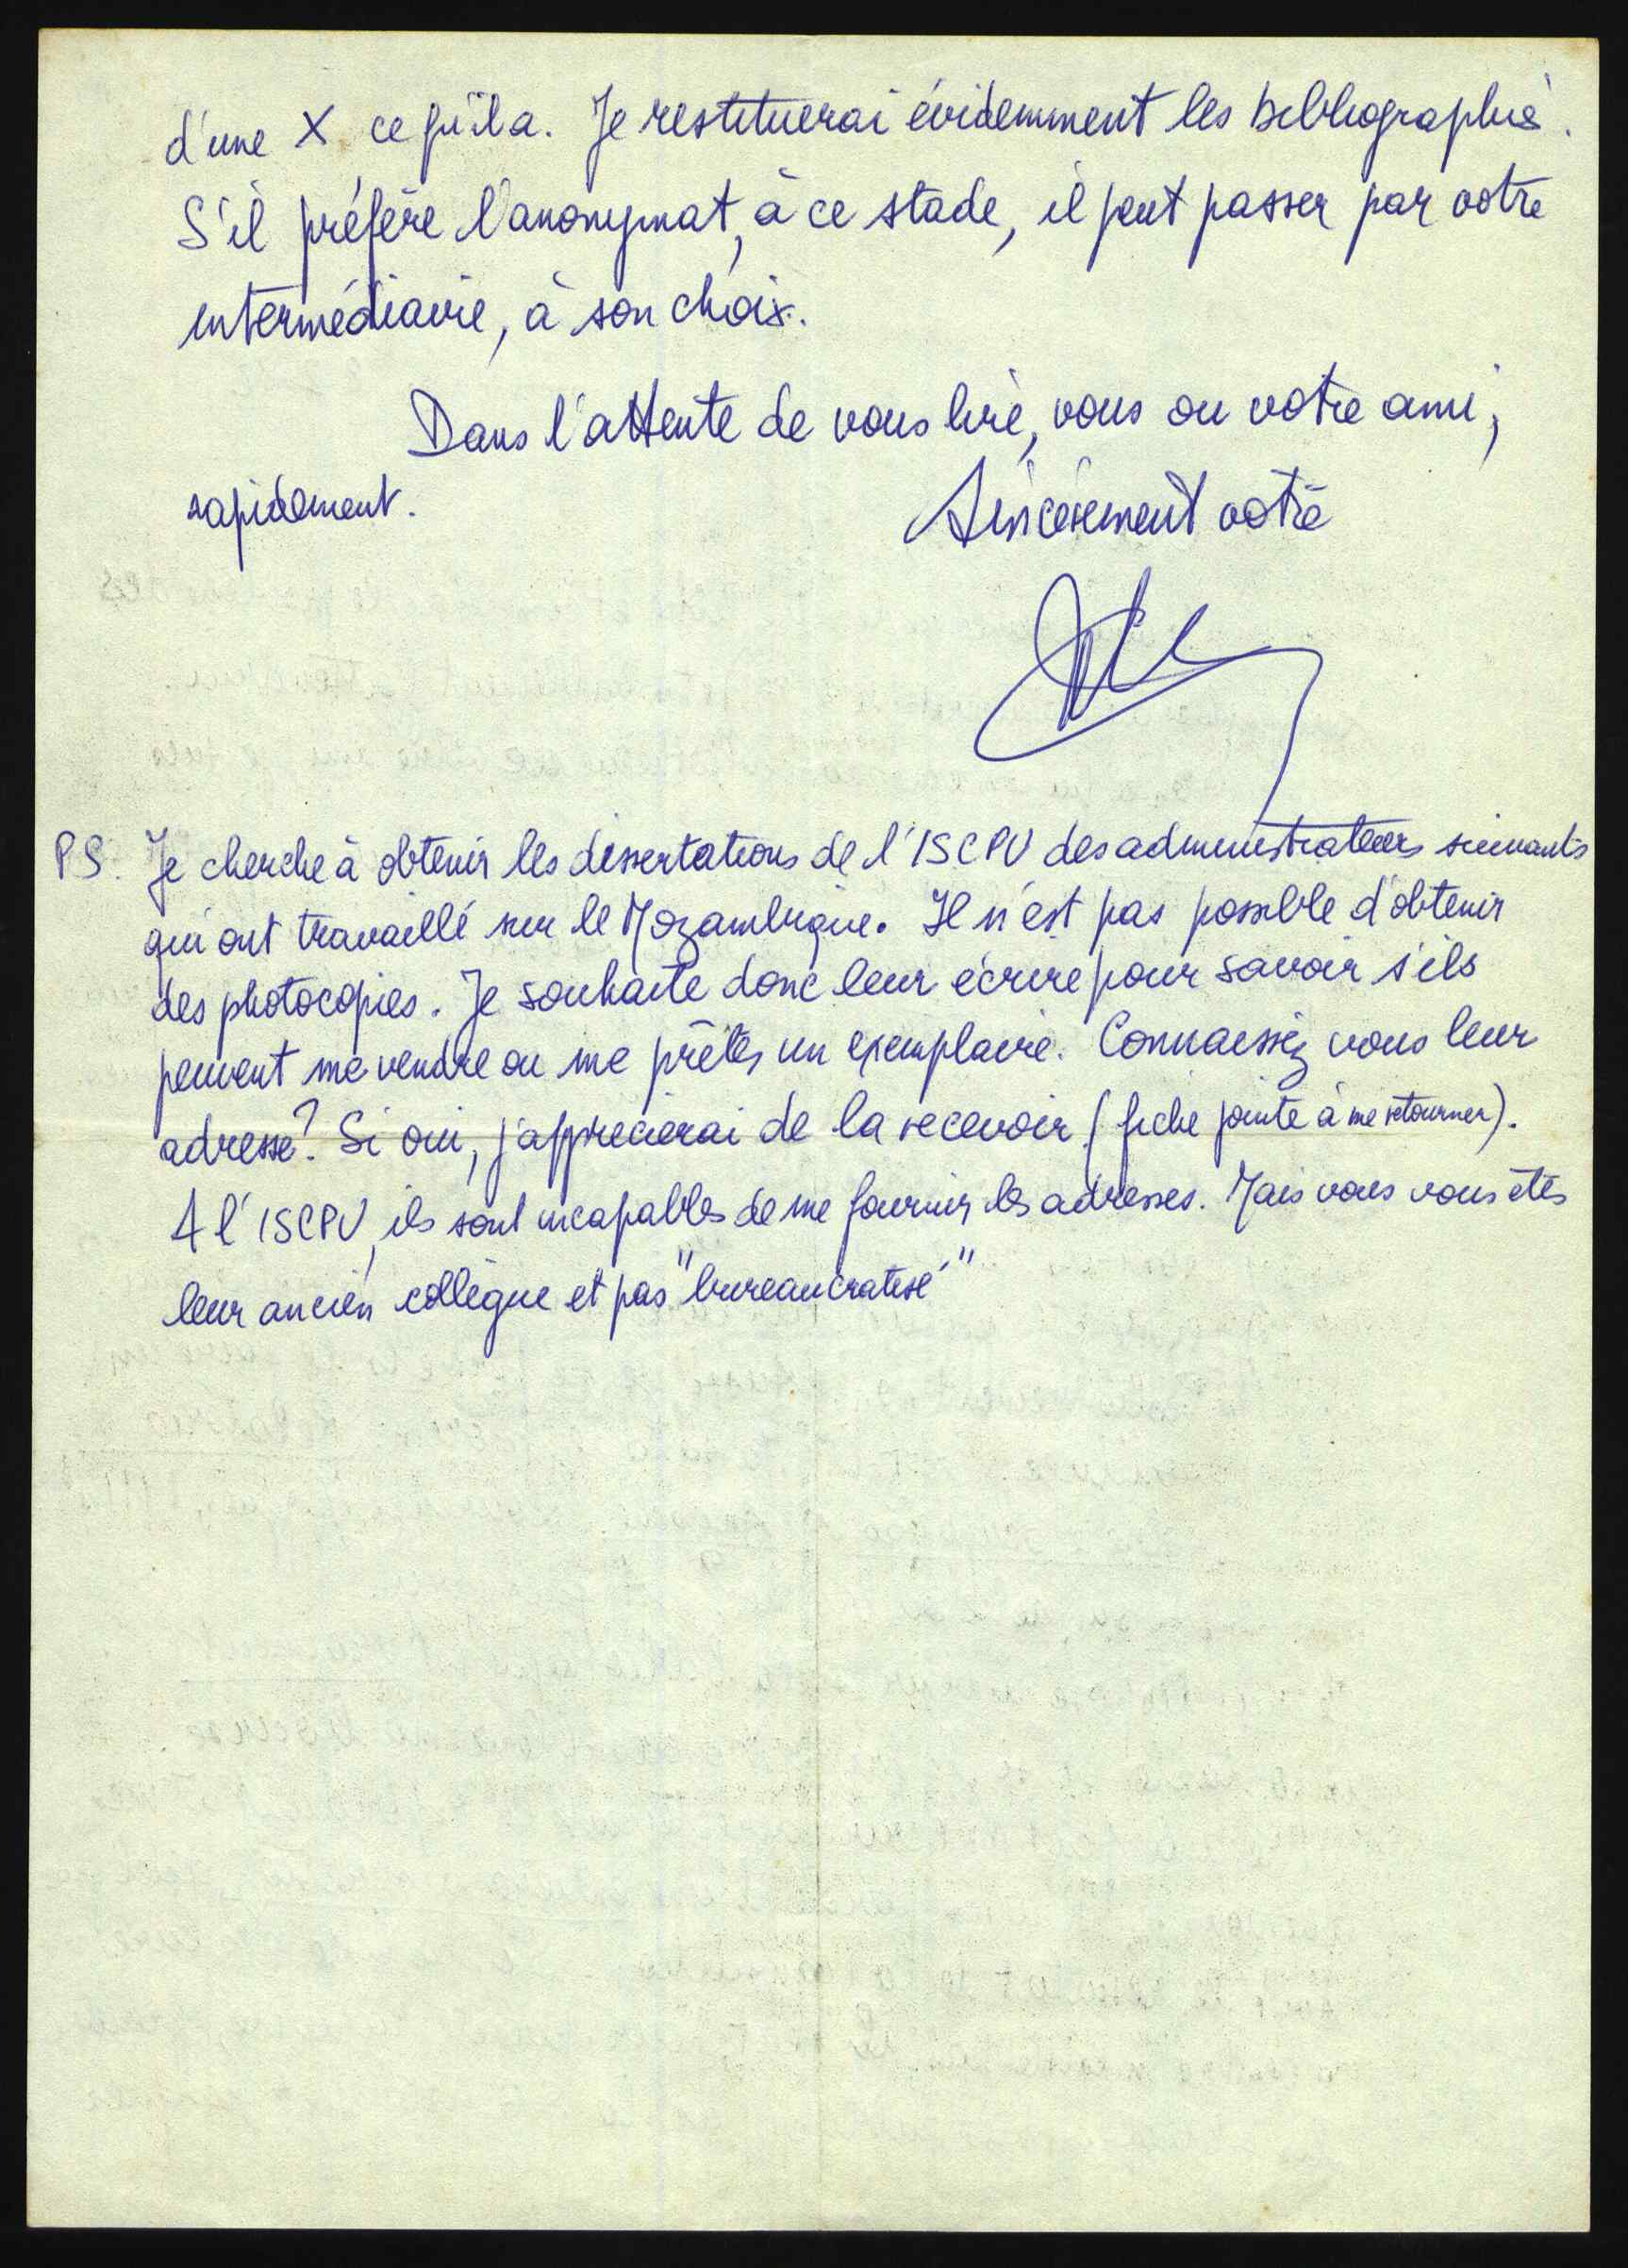 d'une X ce qu'il a. Je restituerai évidemment les bibliographies.
S'il préfère l'anonymat, à ce stade, il peut passer par votre
intermédiaire, à son choix.
Dans l'attente de vous lire, vous ou votre ami,
rapidement.
Sincèrement votre
PS. Je cherche à obtenir les dissertations de l'ISCPU des administrateurs suivants
qui ont travaillé sur le Mozambique. Il n'est pas possible d'obtenir
des photocopies. Je souhaite donc leur écrire pour savoir s'ils
peuvent me vendre ou me prêter un exemplaire. Connaissez vous leur
adresse? Si oui, j'apprecierai de la recevoir (fiche jointe à me retourner).
A l'ISCPU, ils sont incapables de me fournir les adresses. Mais vous vous êtes
leur ancien collègue et pas "bureaucratisé"